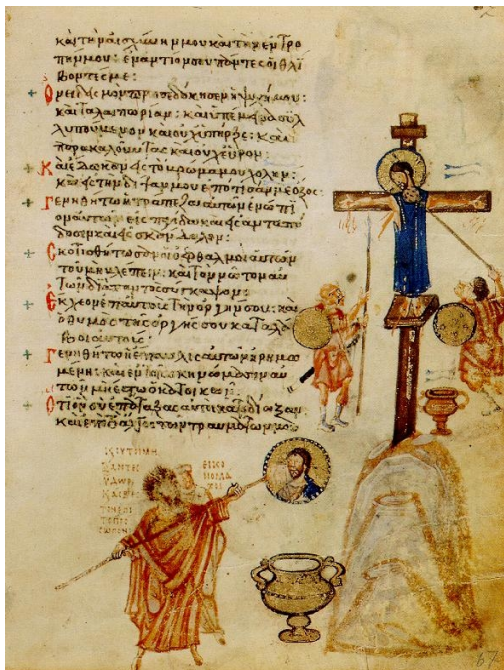 καὶ τὴν αἰσχύνην μου καὶ τὴν ἐντρο
πήν μου· ἐναντίον σου πάντες οἱ θλί
βοντές με·
Ὀνειδισμὸν προσεδόκησεν ἡ ψυχή μου·
καὶ ταλαιπωρίαν· καὶ ὑπέμεινα συλ
λυπούμενον καὶ οὐχ ὑπῆρξε· καὶ
παρακαλοῦντας καὶ οὐχ εὗρον·
Καὶ ἔδωκαν εἰς τὸ βρῶμά μου χολήν·
καὶ εἰς τὴν δίψαν μου ἐπότισάν με ὄξος·
Γενηθήτω ἡ τράπεζα αὐτῶν ἐνώπι
ον αὐτῶν εἰς παγίδα καὶ εἰς ἀνταπό
δοσιν καὶ εἰς σκάνδαλον·
Σκοτισθήτωσαν οἱ ὀφθαλμοὶ αὐτῶν
τοῦ μὴ βλέπειν· καὶ τὸν νῶτον αὐ
τῶν διὰ παντὸς σύγκαμψον·
Ἔκχεον ἐπ' αὐτοὺς τὴν ὀργήν σου· καὶ
ὁ θυμὸς τῆς ὀργῆς σου καταλά
βοι αὐτούς·
Γενηθήτω ἡ ἔπαυλις αὐτῶν ἠρημω
μένη· καὶ ἐν τοῖς σκηνώμασιν αὐ
τῶν μὴ ἔστω ὁ κατοικῶν·
Ὅτι ὃν σὺ ἐπάταξας αὐτοὶ κατεδίωξαν·
καὶ ἐπὶ τὸ ἄλγος τῶν τραυμάτων μου
ΞΑΝΤΕΣ
ΥΔΩΡ
ΕΙΚΟ
ΝΟΜΑ
ΧΟΙ
67